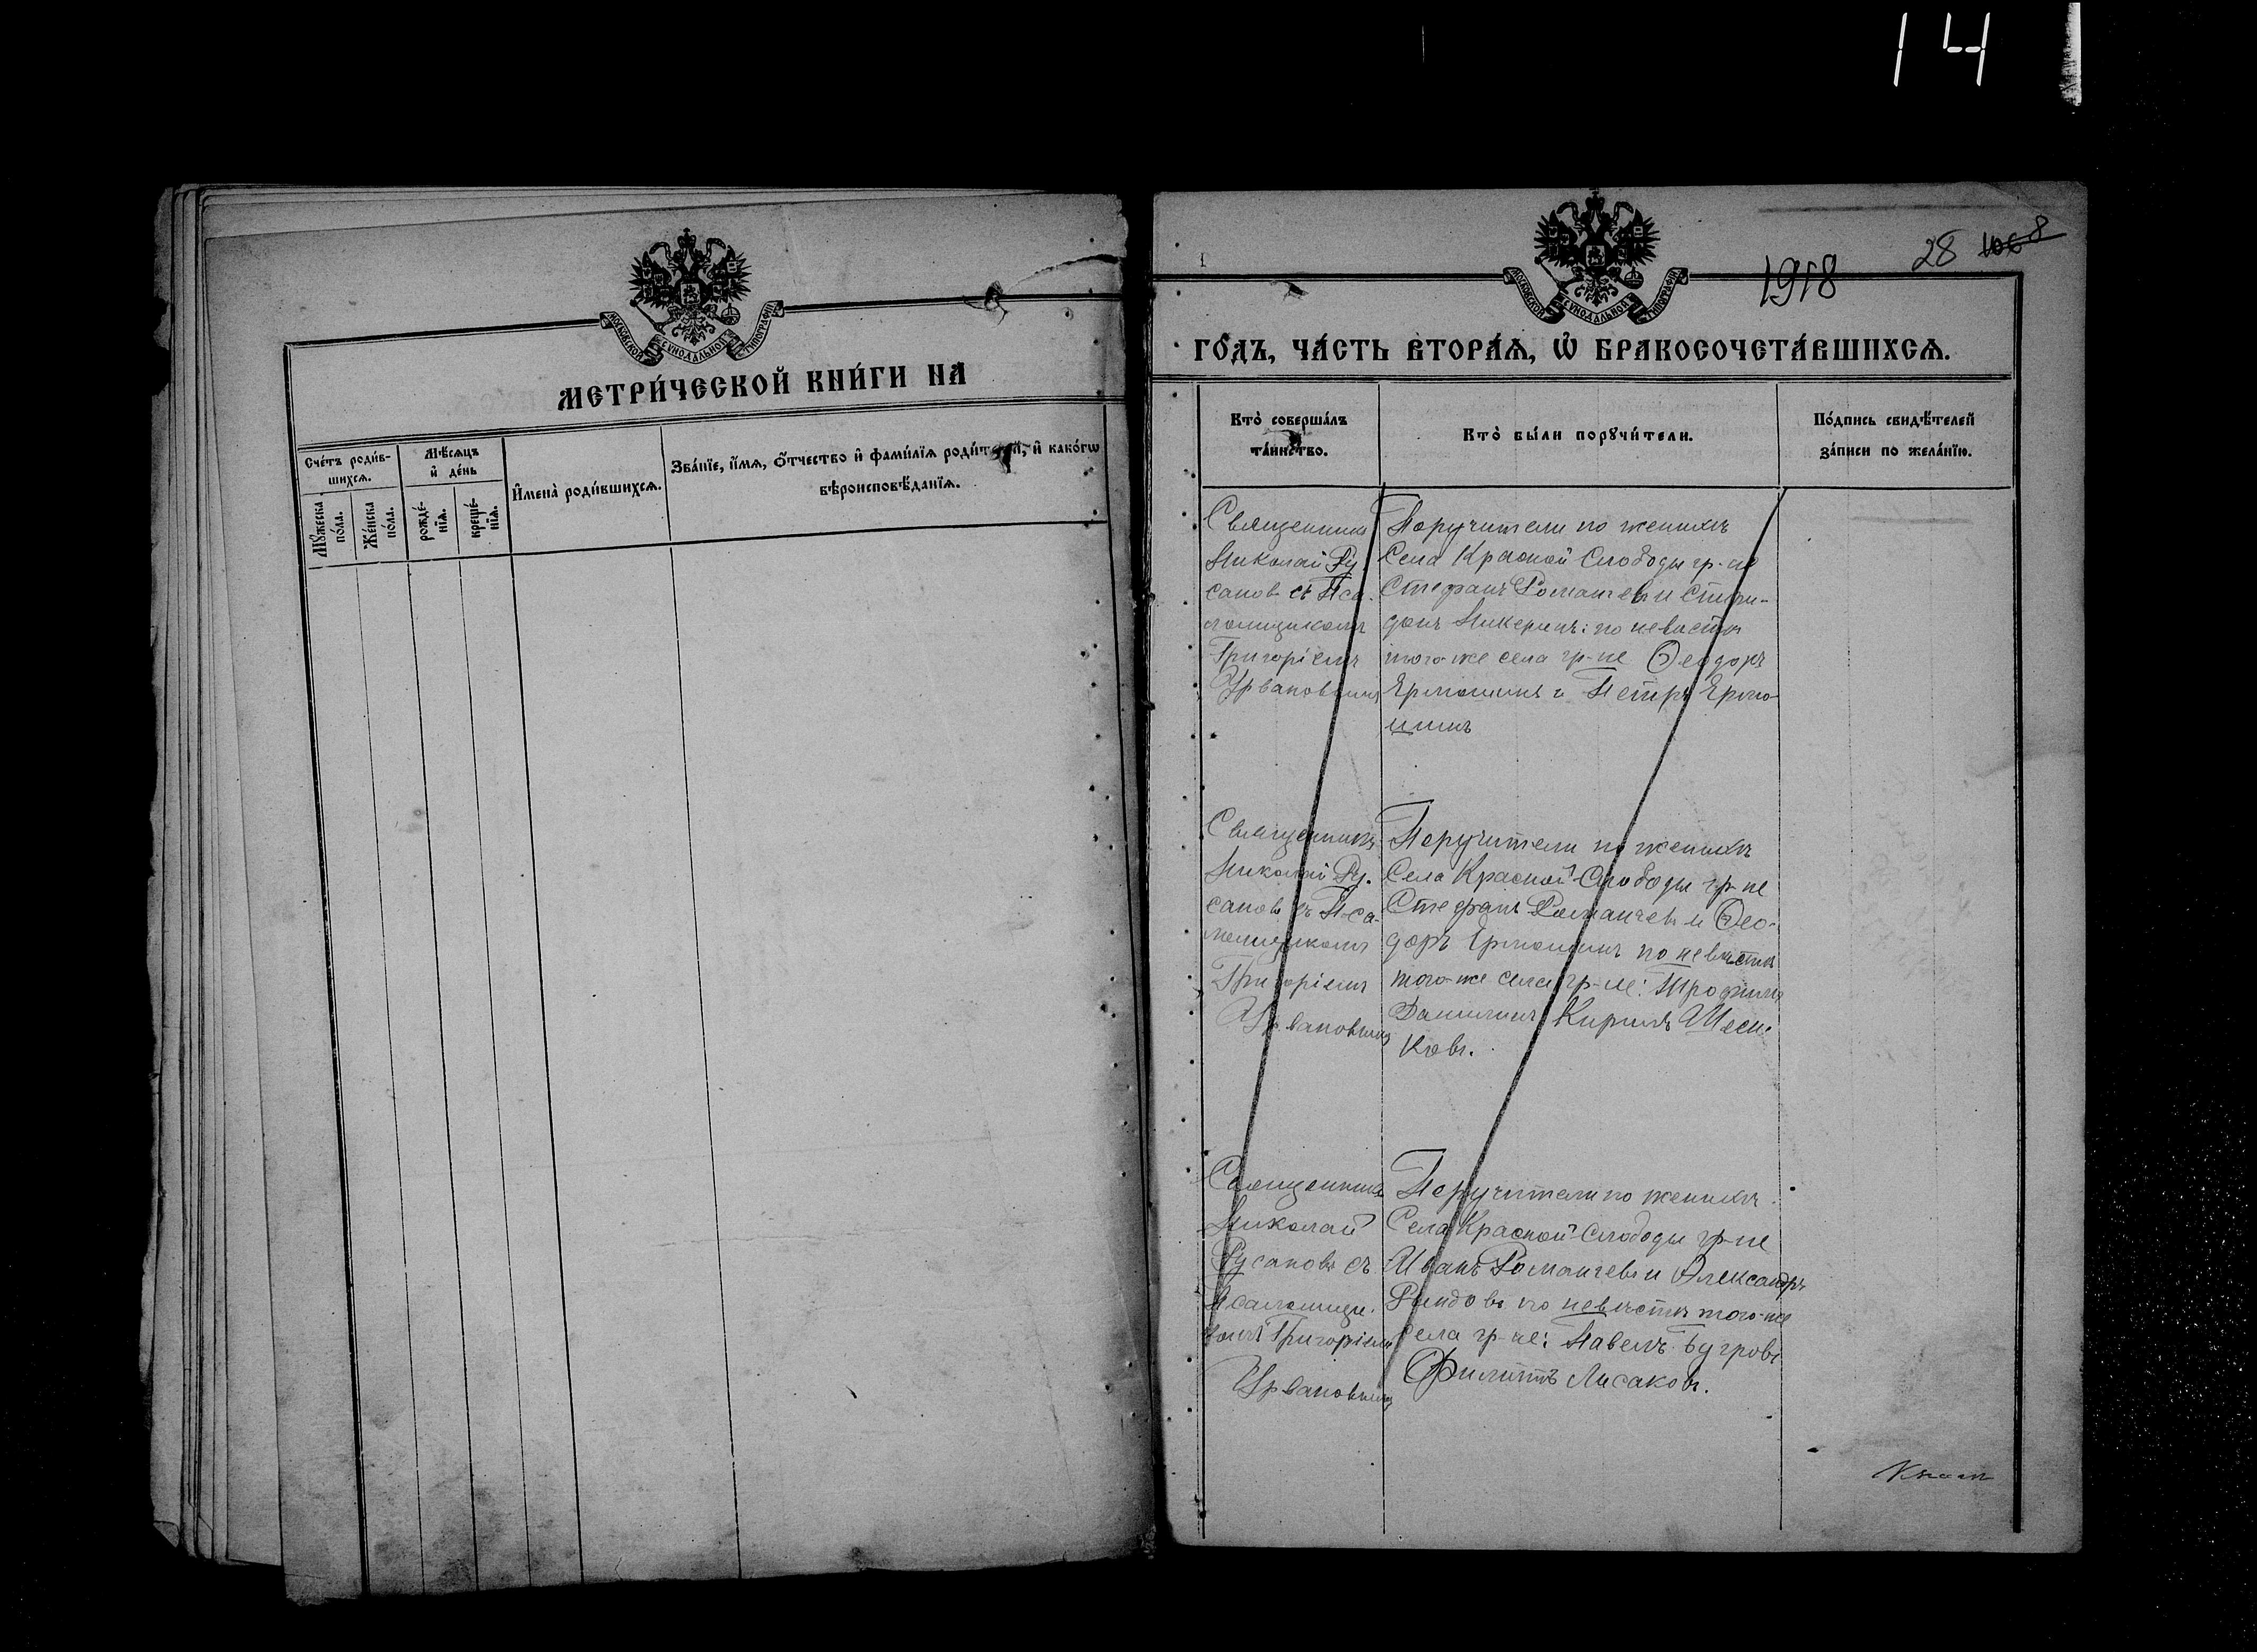 14
МОСКОВСКОЙ СѴНОДАЛЬНОЙ ТИПОГРАФІИ
МЕТРИ́ЧЕСКОЙ КНИ́ГИ НА
Сче́тъ роди́в-
шихсѧ.
Мꙋ́жеска по́ла.
Же́нска по́ла.
Мѣ́сѧцъ
и҆ де́нь
рожде́-
нїѧ.
креще́-
нїѧ.
И҆мена̀ роди́вшихсѧ.
Зва́нїе, и҆́мѧ, ѻ҆́тчество и҆ фами́лїѧ роди́телей, и҆ како́гѡ
вѣроисповѣ́данїѧ.
28
1918
МОСКОВСКОЙ СѴНОДАЛЬНОЙ ТИПОГРАФІИ
ГО́ДЪ, ЧА́СТЬ ВТОРА́Ѧ, Ѽ БРАКОСОЧЕТА́ВШИХСѦ.
Кто̀ соверша́лъ
та́инство.
Кто̀ бы́ли порꙋчи́тели.
По́дпись свидѣ́телей
за́писи по жела́нїю.
Священникъ
Николай Ру-
санов съ Пса-
ломщикомъ
Григоріемъ
Поручители по женихѣ
Села Красной Слободы гр-не
Стефанъ Романчевъ и Спири-
донъ Никеринъ: по невѣстѣ
того-же села гр-не Ѳеодоръ
Ермошинъ и Петръ Ермо-
шинъ
Священникъ
Николай Ру-
сановъ съ Пса-
ломщикомъ
Григоріемъ
Поручители по женихѣ
Села Красной Слободы гр-не
Стефанъ Романчевъ и Ѳео-
доръ Ермошинъ по невѣстѣ
того-же села гр-не: Трофимъ
Данилинъ Кирилъ
ковъ.
Священникъ
Николай
Русановъ съ
Псаломщи-
комъ Григоріемъ
Поручители по женихѣ
Села Красной Слободы гр-не
Иванъ Романчевъ и Александръ
по невѣстѣ того-же
села гр-не: Павелъ Бугровъ
Филиппъ Лисаковъ.